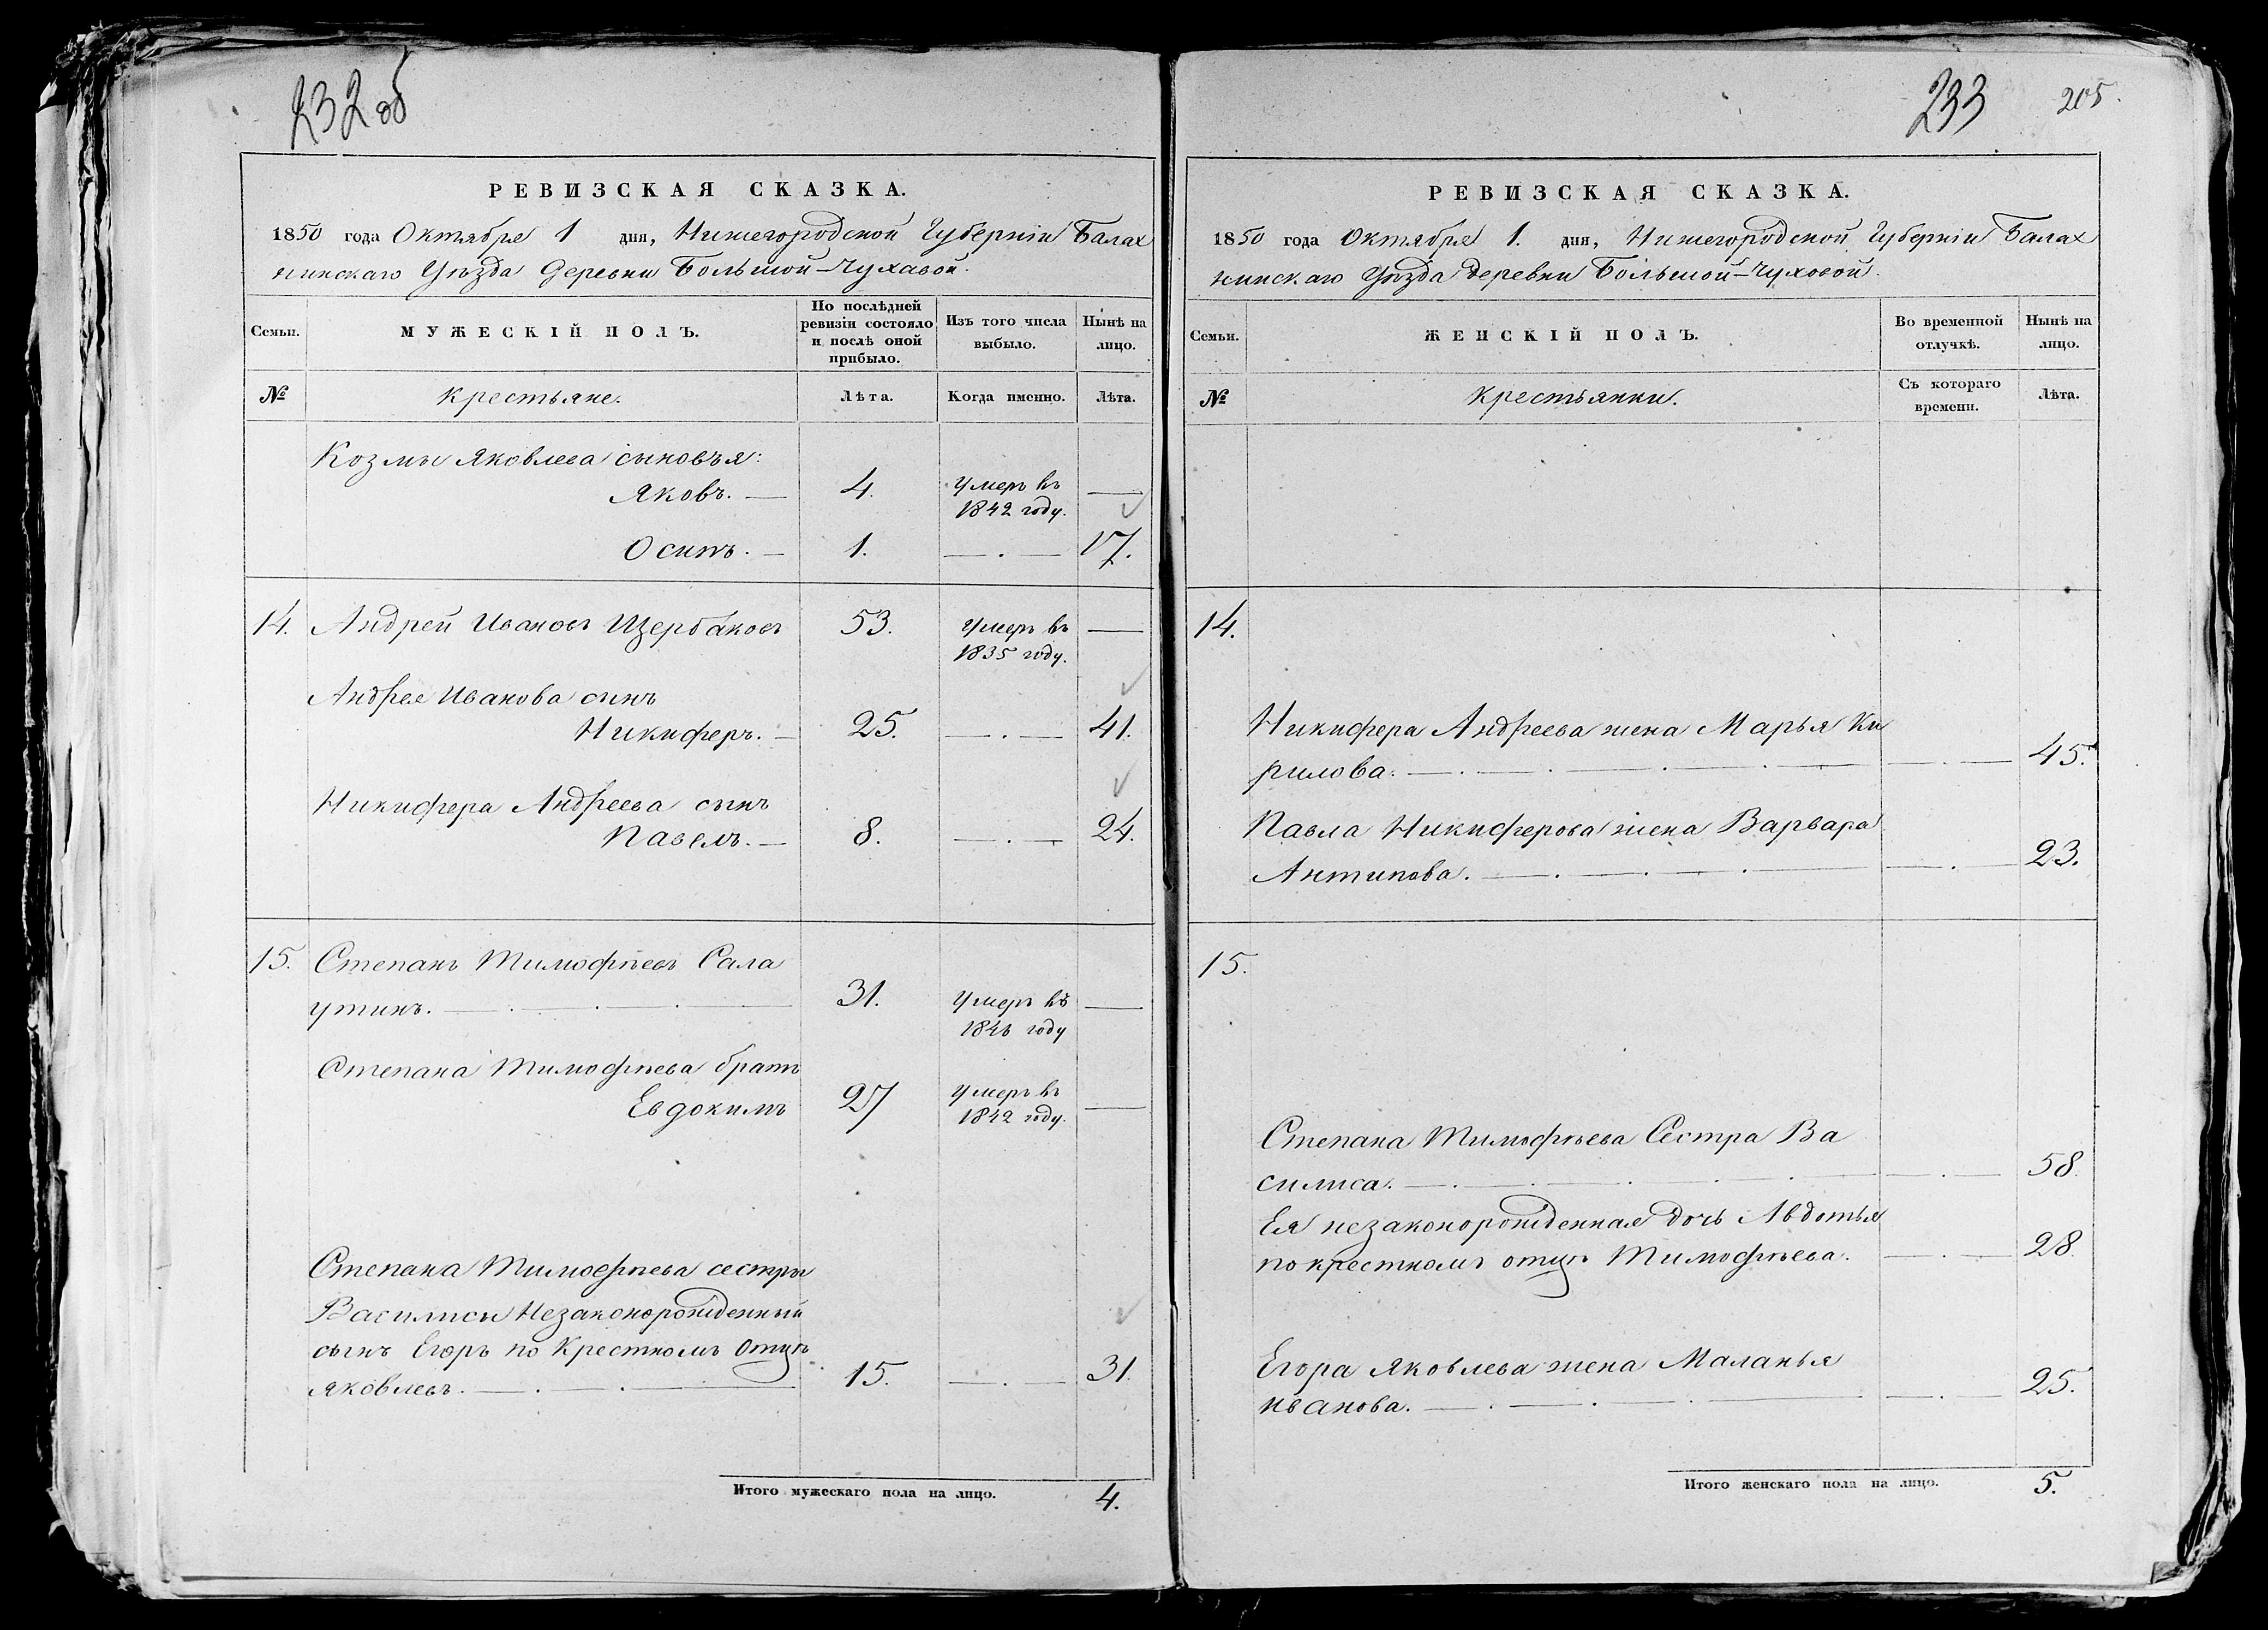 232 об
РЕВИЗСКАЯ СКАЗКА.
1850 года Октября 1 дня, Нижегородской Губерніи Балах
нинскаго Уѣзда Деревни Большой-Чухавой.
Семьи.
МУЖЕСКІЙ ПОЛЪ.
По послѣдней
ревизіи состояло
и послѣ оной
прибыло.
Изъ того числа
выбыло.
Нынѣ на
лицо.
№
Крестьяне.
Лѣта.
Когда именно.
Лѣта.
Козмы Яковлева сыновья:
Яковъ. — 4. умеръ въ —
1842 году.
Осипъ. — 1. — . — 17.
14. Андрей Ивановъ Щербаковъ 53. умеръ въ —
1835 году.
Андрея Иванова сынъ
Никиферъ. — 25. — . — 41.
Никифера Андреева сынъ
Павелъ. — 8. — . — 24.
15. Степанъ Тимофѣевъ Сала
утинъ. — 31. умеръ въ —
году
Степана Тимофѣева братъ
Евдокимъ 27 умеръ въ —
1842 году.
Степана Тимофѣева сестры
Василисы Незаконорожденный
сынъ Егоръ по Крестномъ Отцѣ
Яковлевъ. — 15. — . — 31.
Итого мужескаго пола на лицо. 4.
233 205.
РЕВИЗСКАЯ СКАЗКА.
1850 года Октября 1. дня, Нижегородской Губерніи Балах
нинскаго Уѣзда деревни Большой-Чуховой.
Семьи.
ЖЕНСКІЙ ПОЛЪ.
Во временной
отлучкѣ.
Нынѣ на
лицо.
№
Крестьянки.
Съ котораго
времени.
Лѣта.
14.
Никифера Андреева жена Марья Ки
рилова. — . — 45.
Павла Никиферова жена Варвара
Антипова. — . — 23.
15.
Степана Тимофѣева Сестра Ва
силиса. — . — 58.
Ея незаконорожденная дочь Авдотья
по крестномъ отцѣ Тимофѣева. — . — 28.
Егора Яковлева жена Маланья
Иванова. — . — 25.
Итого женскаго пола на лицо. 5.